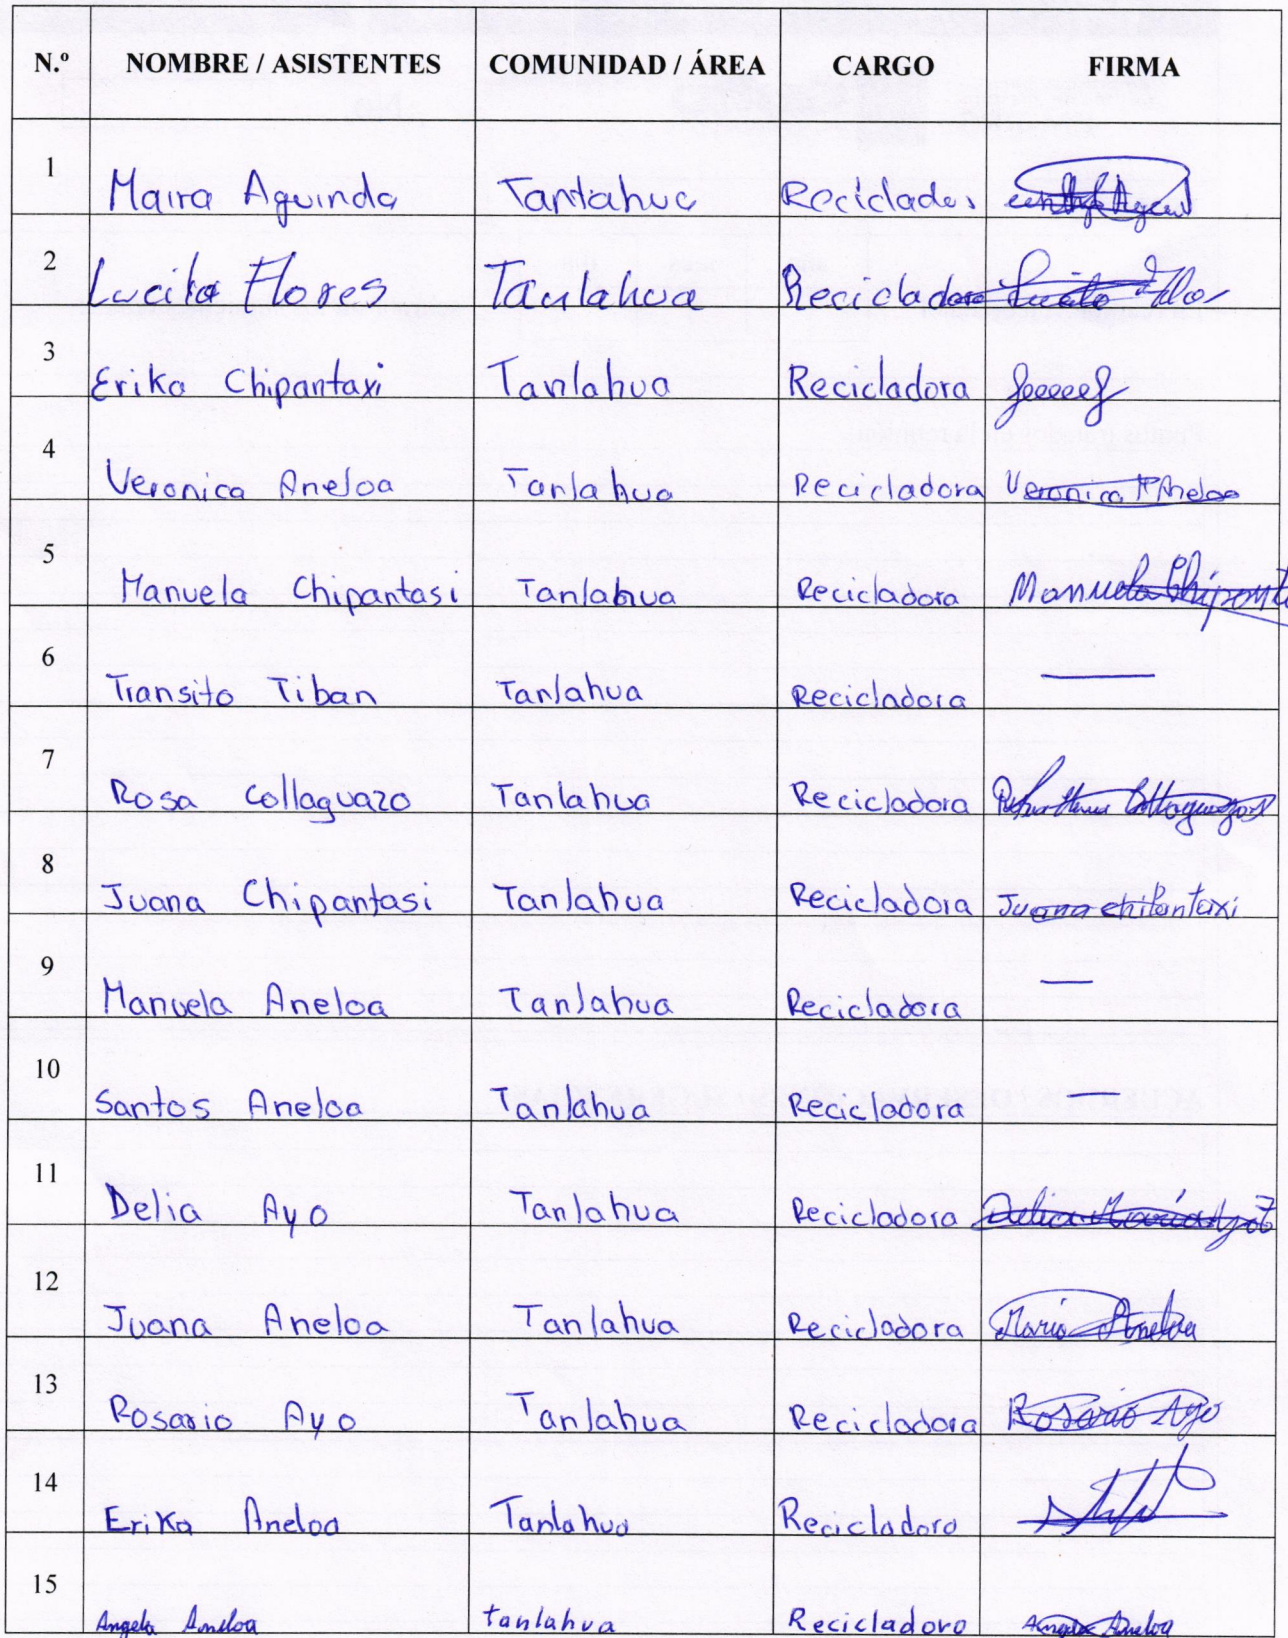 N.º NOMBRE / ASISTENTES COMUNIDAD / ÁREA CARGO FIRMA
1 Maira Aguinda Tanlahua Reciclador
2 Lucila Flores Tanlahua Recicladora
3 Erika Chipantaxi Tanlahua Recicladora
4 Veronica Aneloa Tanlahua Recicladora Veronica Aneloa
5 Manuela Chipantasi Tanlahua Recicladora Manuela Chipanta
6 Transito Tiban Tanlahua Recicladora —
7 Rosa Collaguazo Tanlahua Recicladora Collaguazo
8 Juana Chipantasi Tanlahua Recicladora Juana chipantaxi
9 Manuela Aneloa Tanlahua Recicladora —
10 Santos Aneloa Tanlahua Recicladora —
11 Delia Ayo Tanlahua Recicladora Delia María Ayo
12 Juana Aneloa Tanlahua Recicladora María Aneloa
13 Rosario Ayo Tanlahua Recicladora Rosario Ayo
14 Erika Aneloa Tanlahua Recicladora
15 Angela Aneloa tanlahua Recicladora Angela Aneloa